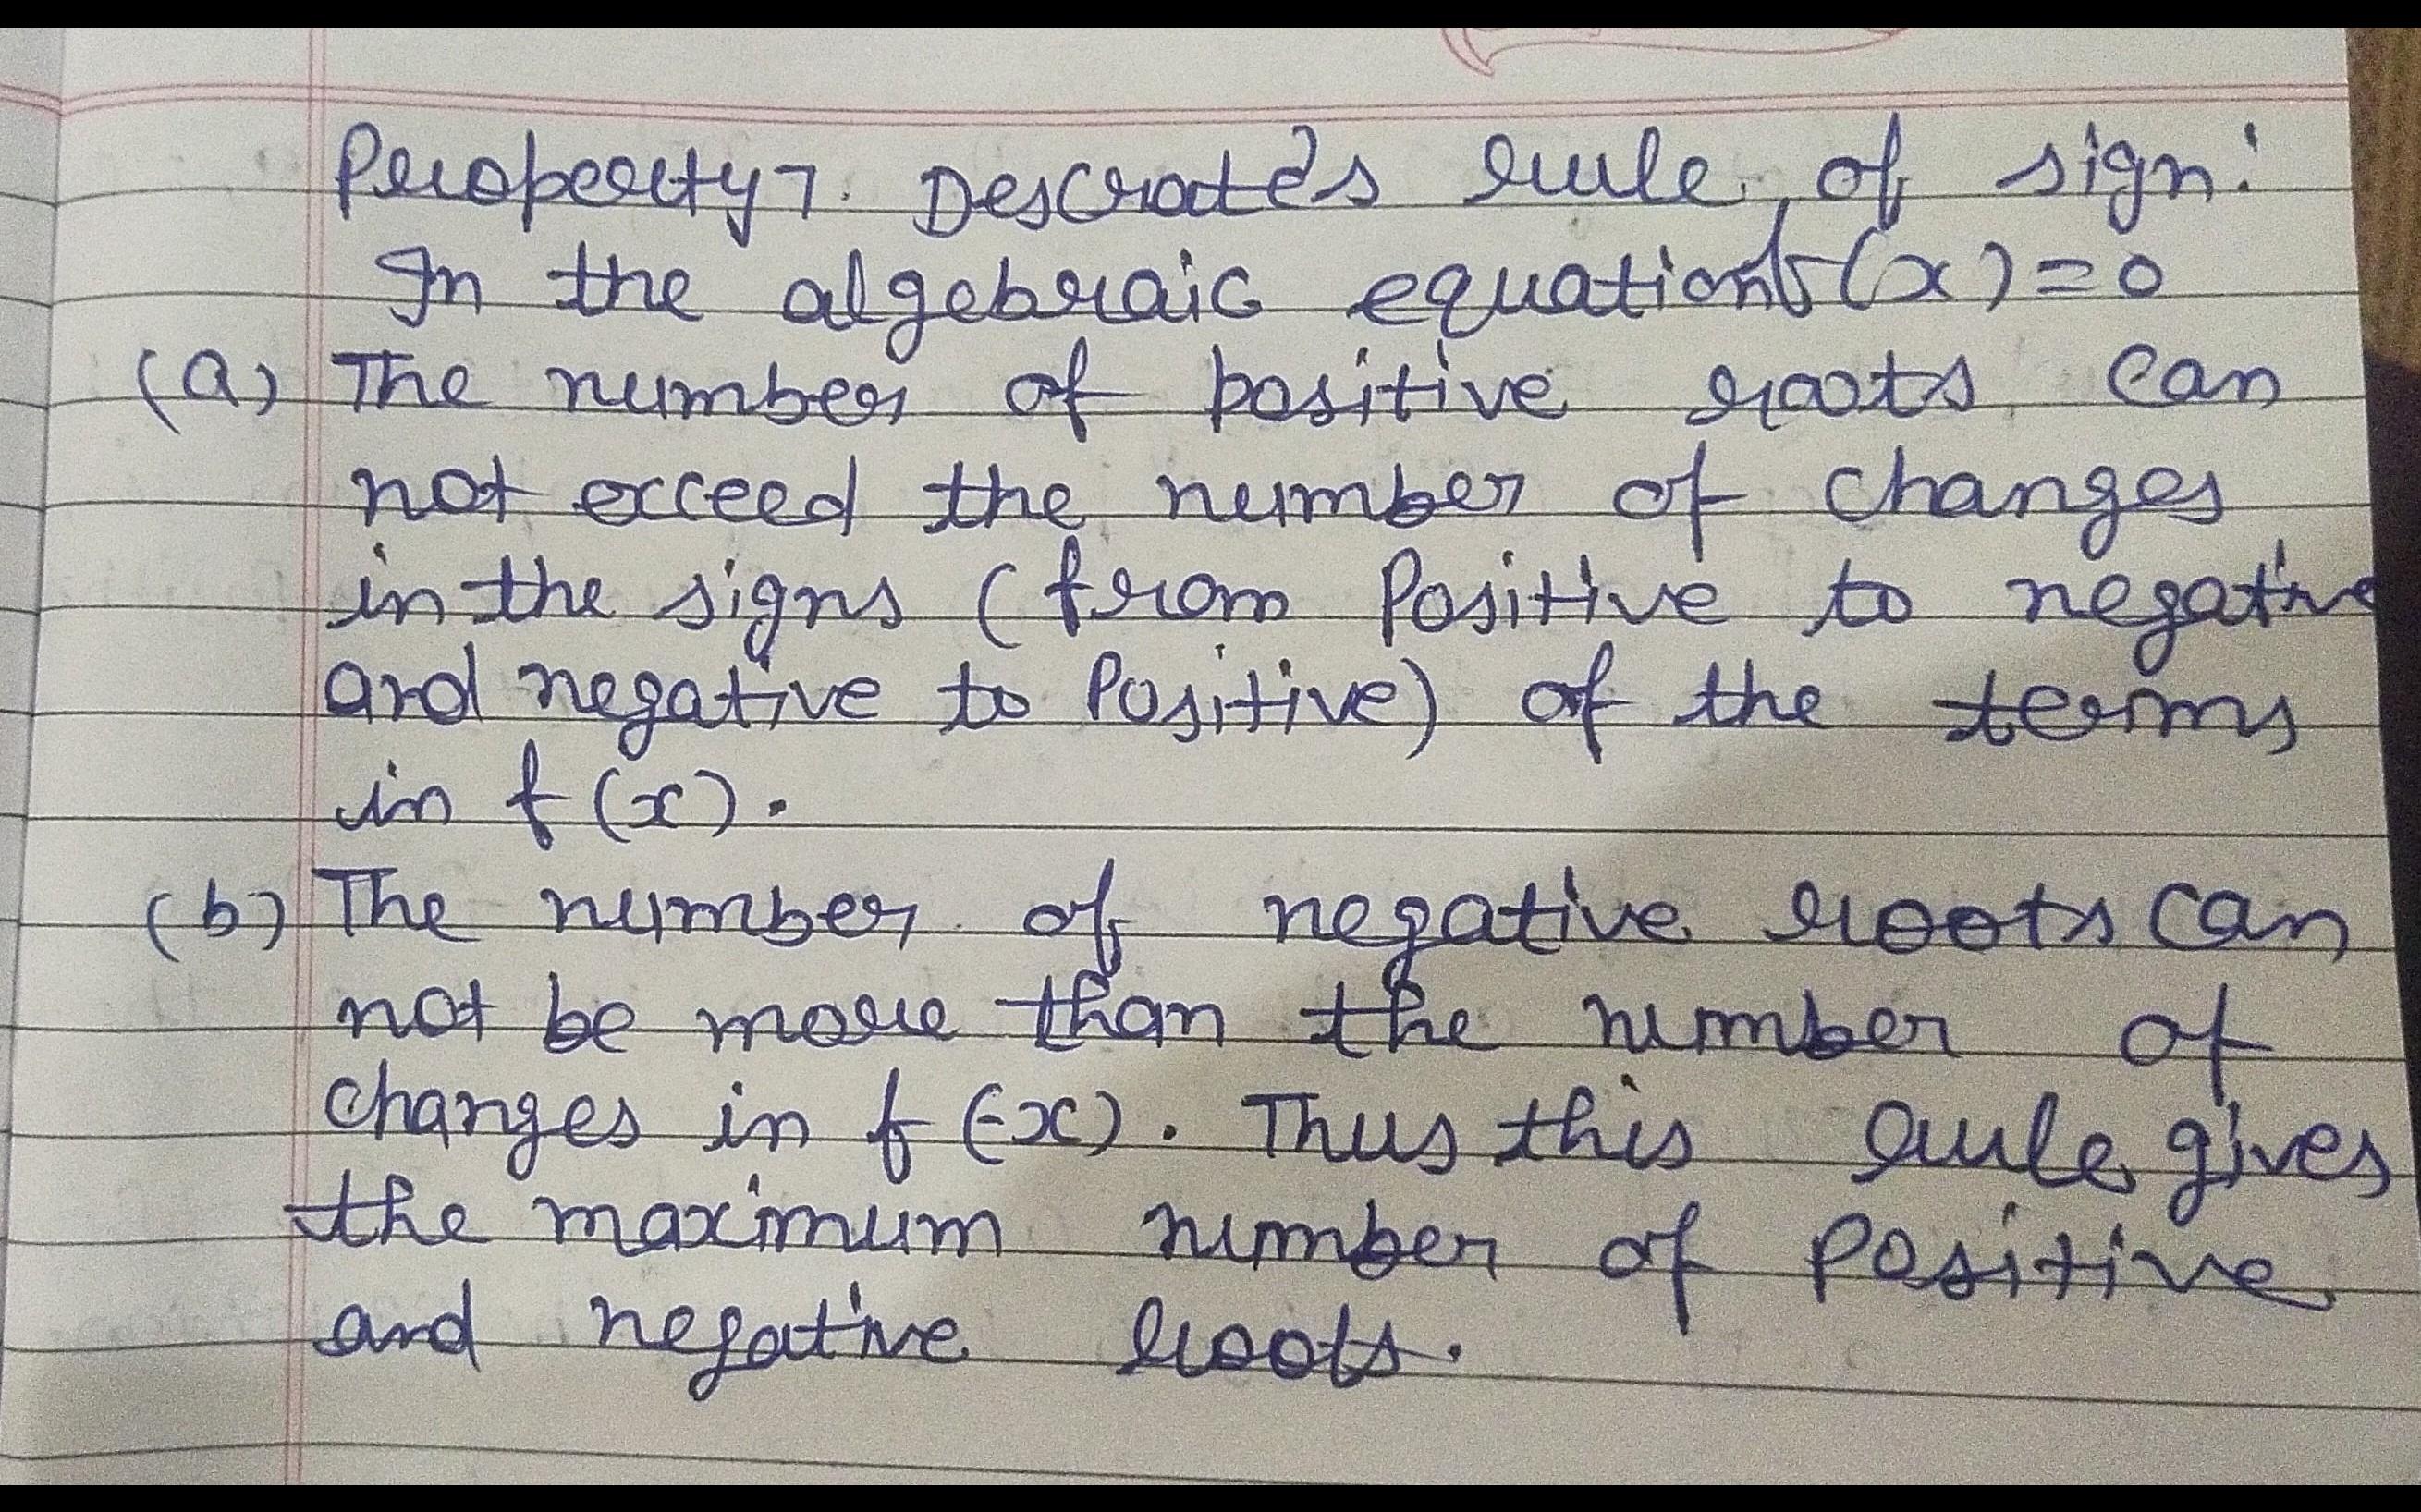 Property 7. Descrate's rule of sign:
In the algebraic equation f(x)=0
(a) The number of positive roots can
not exceed the number of changes
in the signs (from Positive to negative
and negative to Positive) of the terms
in f(x).
(b) The number of negative roots can
not be more than the number of
changes in f(-x). Thus this rule gives
the maximum number of Positive
and negative roots.